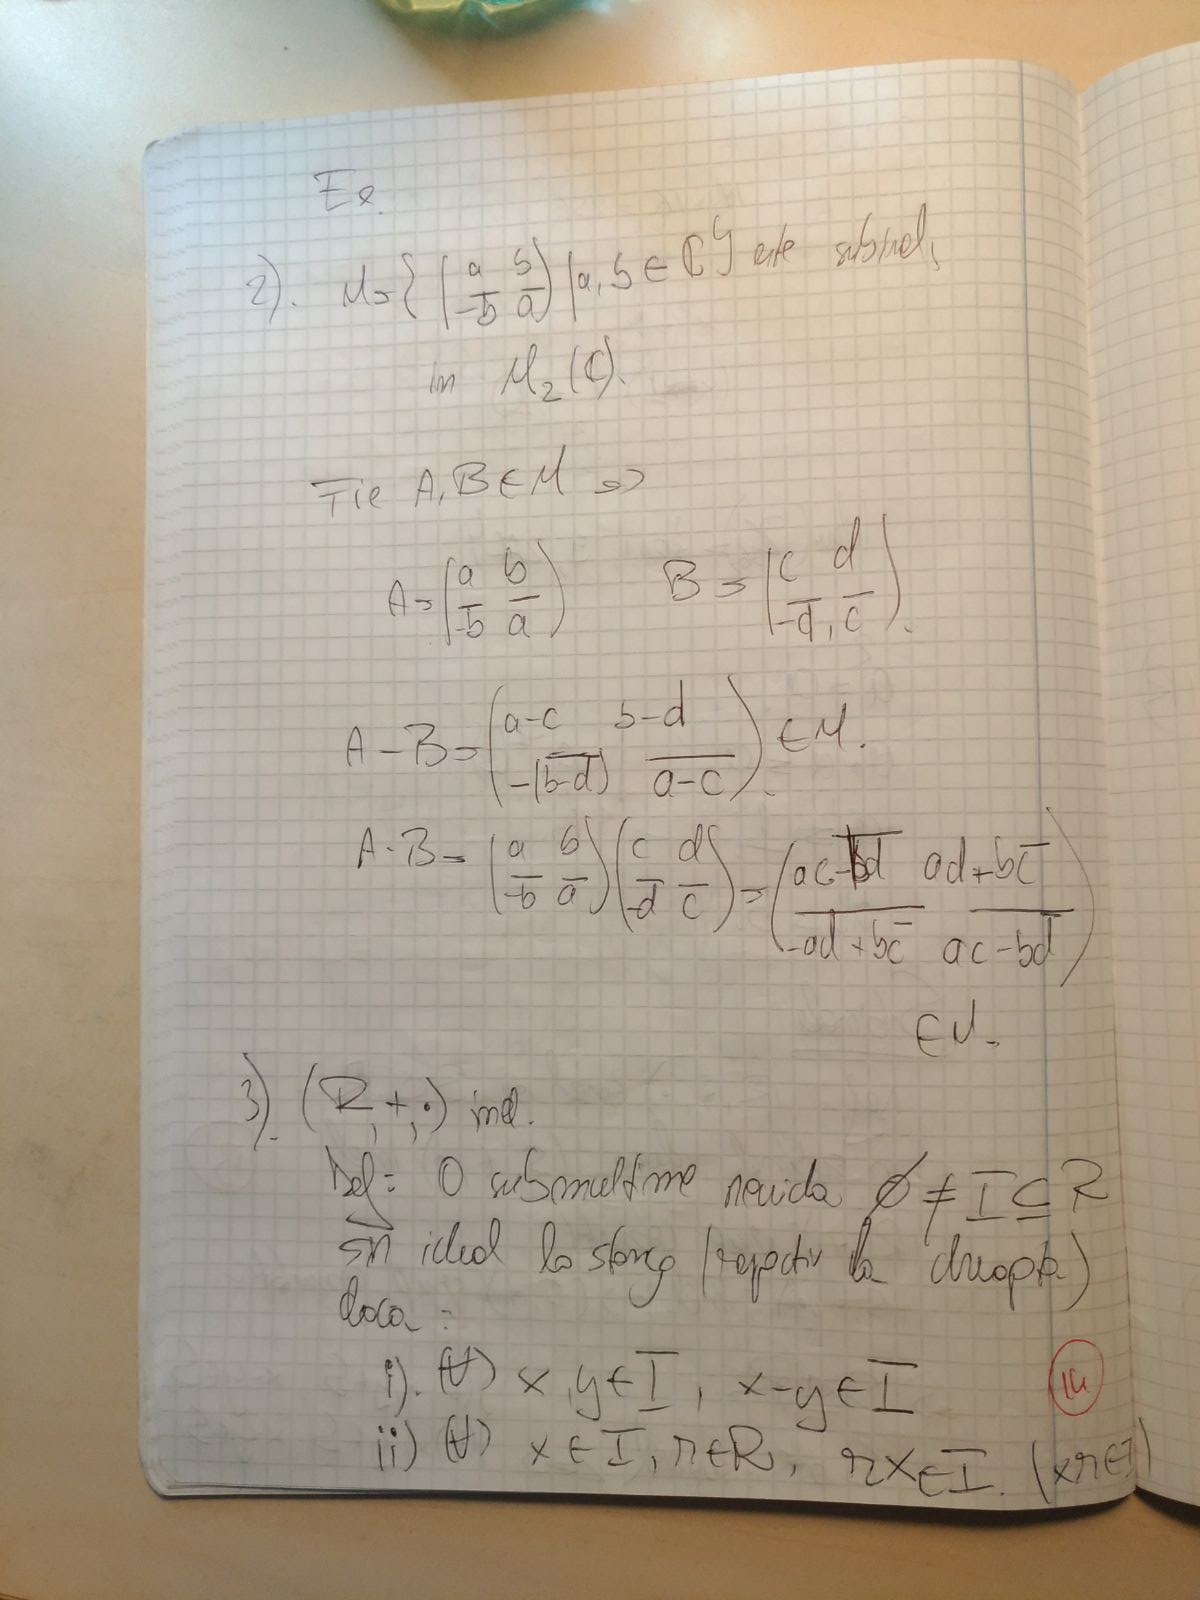 Ex.
2). M={ (a b / -b̅ a̅) | a, b ∈ ℂ} este subinel,
in M₂(ℂ).
Fie A, B ∈ M ⇒
A = (a b / -b̅ a̅) B = (c d / -d̅, c̅).
A - B = (a-c b-d / -(b̅-̅d̅) a̅-̅c̅) ∈ M.
A·B = (a b / -b̅ a̅)(c d / -d̅ c̅) = (ac-bd̅ ad+bc̅ / -\overline{ad+bc̅} \overline{ac-bd̅})
∈ M.
3). (R, +, ·) inel.
Def: O submultime nevida ∅ ≠ I ⊆ R
sn ideal la stang (respectiv la dreapta)
daca:
i). (∀) x, y ∈ I, x-y ∈ I
14
ii) (∀) x ∈ I, r ∈ R, rx ∈ I. (xr ∈ I)